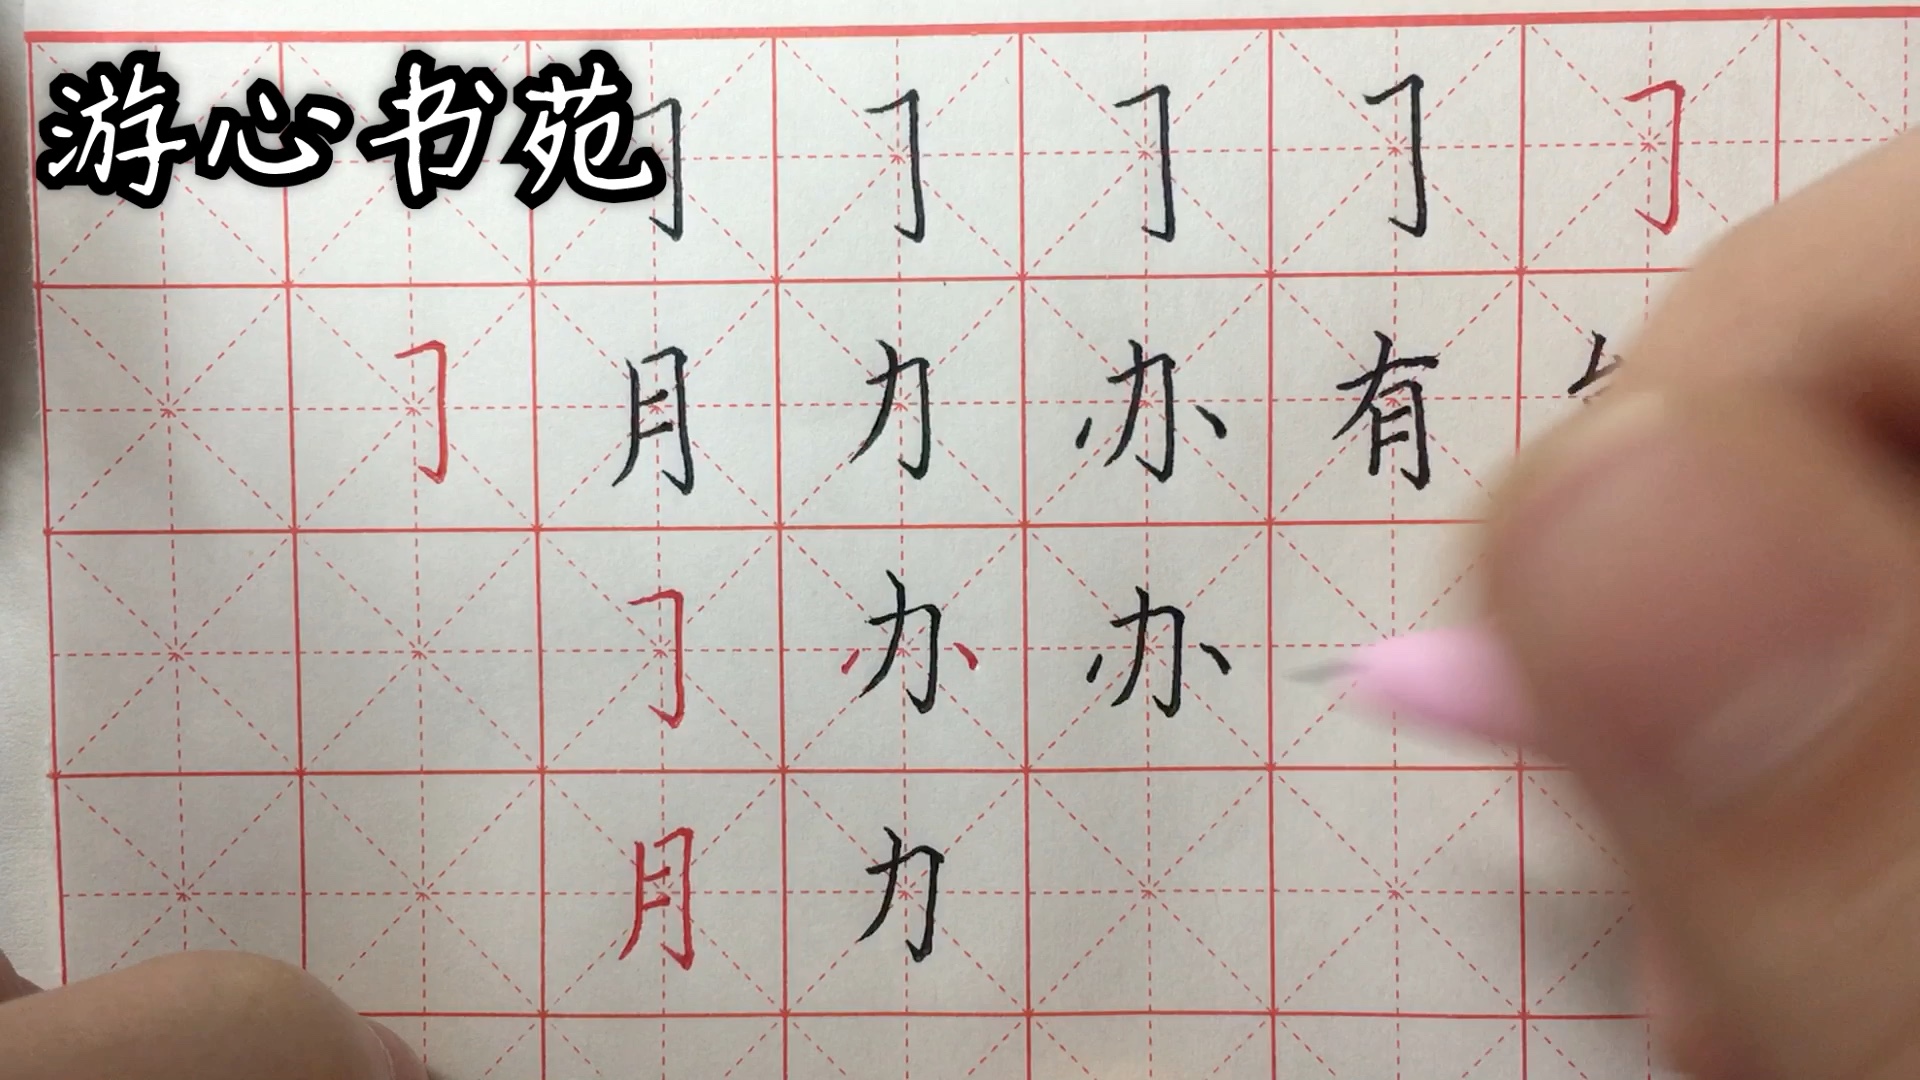 游心书苑
𠃌 𠃌 𠃌 𠃌 𠃌
𠃌 月 力 办 有
𠃌 办 办
月 力